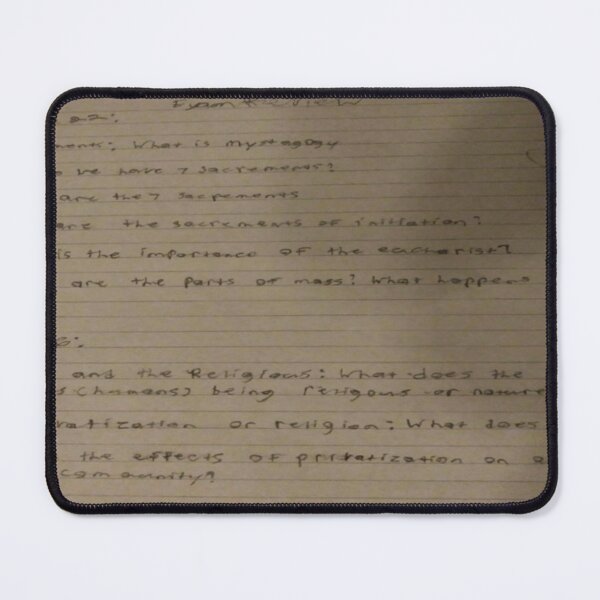 Exam Review
22:
ments: What is mystagogy
we have 7 sacrements?
are the 7 sacrements
are the sacrements of initiation?
is the importance of the eucharist?
are the parts of mass? What happens
6:
and the Religious: What does the
s (humans) being religous or nature
ratization or religion: What does
the effects of privatization on a
community?